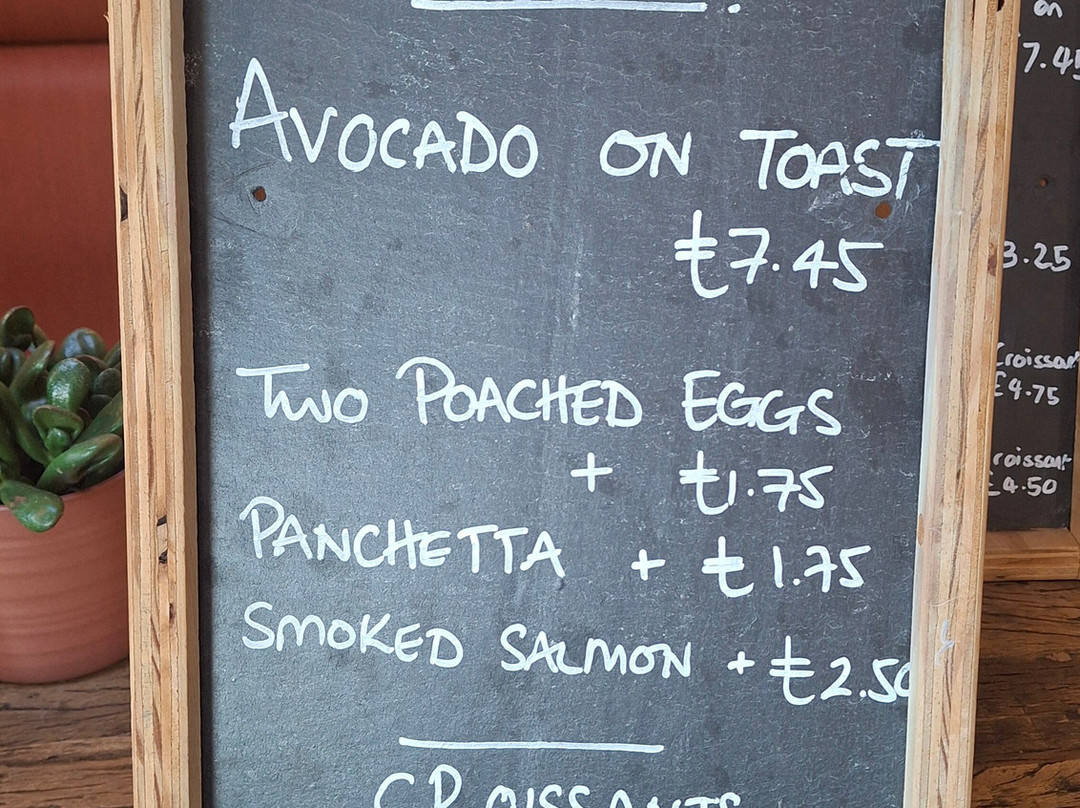 AVOCADO ON TOAST
£7.45
TWO POACHED EGGS
+ £1.75
PANCHETTA + £1.75
SMOKED SALMON + £2.50
CROISSANTS
on
7.45
3.25
Croissant
£4.75
roissant
£4.50